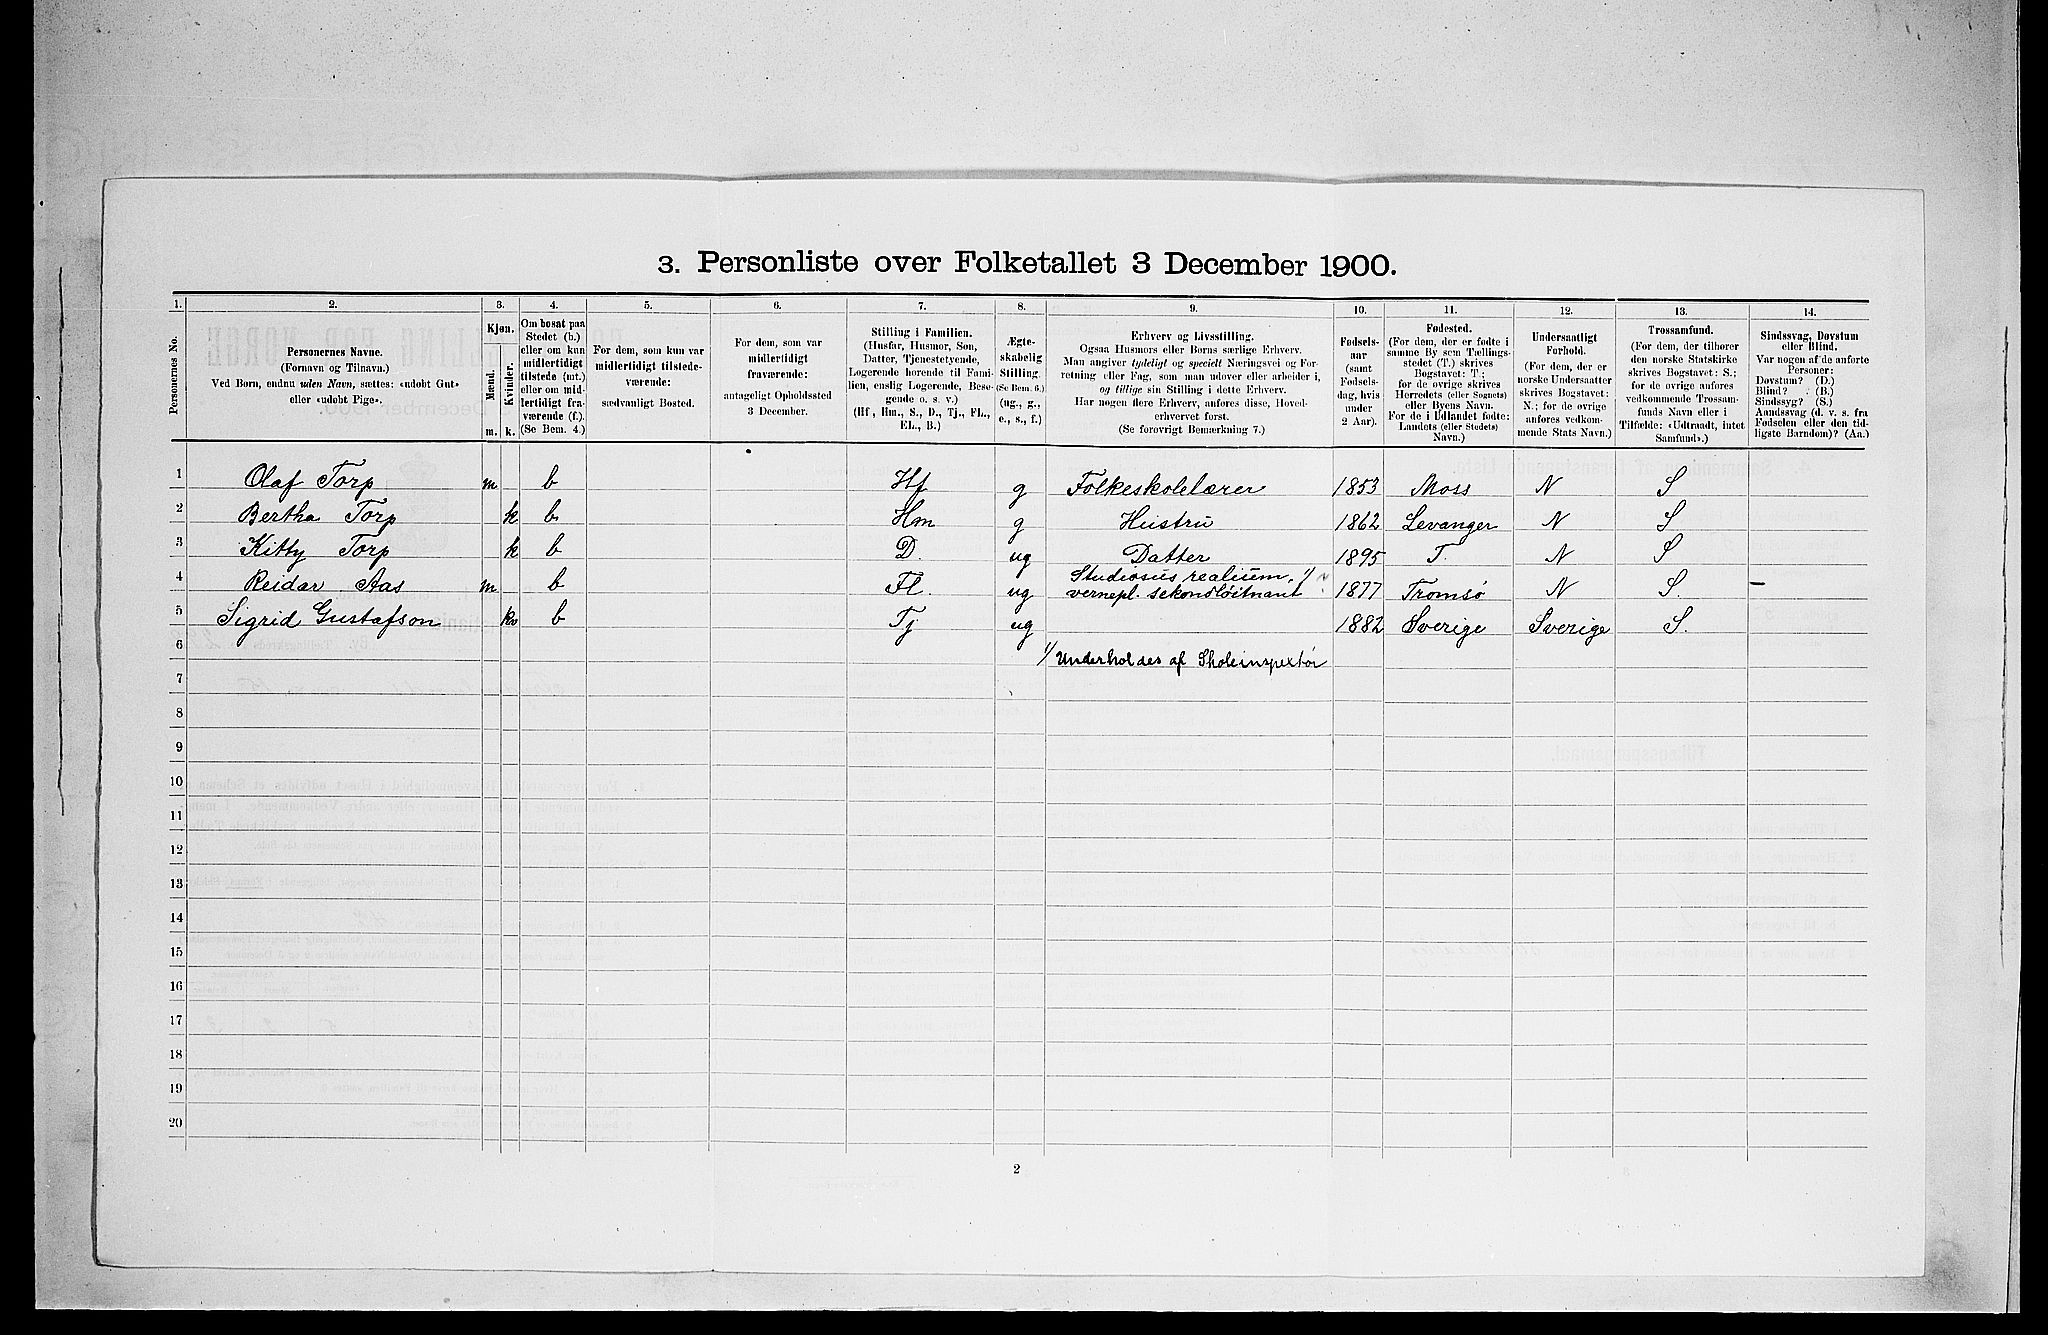 3. Personliste over Folketallet 3 December 1900.
1. 2. 3. 4. 5. 6. 7. 8. 9. 10. 11. 12. 13. 14.
Personernes No.
Personernes Navne.
(Fornavn og Tilnavn.)
Ved Børn, endnu uden Navn, sættes: «udøbt Gut»
eller «udøbt Pige».
Kjøn.
Mænd.
Kvinder.
m. k.
Om bosat paa
Stedet (b.)
eller om kun
midlertidigt
tilstede (mt.)
eller om mid-
lertidigt fra-
værende (f.)
(Se Bem. 4.)
For dem, som kun var
midlertidigt tilstede-
værende:
sædvanligt Bosted.
For dem, som var
midlertidigt
fraværende:
antageligt Opholdssted
3 December.
Stilling i Familien.
(Husfar, Husmor, Søn,
Datter, Tjenestetyende,
Logerende hørende til Fami-
lien, enslig Logerende, Besø-
gende o. s. v.)
(Hf, Hm., S., D., Tj., FL.,
EL., B.)
Ægte-
skabelig
Stilling.
(Se Bem. 6.)
(ug., g.,
e., s., f.)
Erhverv og Livsstilling.
Ogsaa Husmors eller Børns særlige Erhverv.
Man angiver tydeligt og specielt Næringsvei og For-
retning eller Fag, som man udøver eller arbeider i,
og tillige sin Stilling i dette Erhverv.
Har nogen flere Erhverv, anføres disse, Hoved-
erhvervet først.
(Se forøvrigt Bemærkning 7.)
Fødsels-
aar
(samt
Fødsels-
dag, hvis
under
2 Aar).
Fødested.
(For dem, der er fødte i
samme By som Tællings-
stedet (T.) skrives
Bogstavet: T.;
for de øvrige skrives
Herredets (eller Sognets)
eller Byens Navn.
For de i Udlandet fødte:
Landets (eller Stedets)
Navn.)
Undersaatligt
Forhold.
(For dem, der er
norske Undersaatter
skrives Bogstavet:
N.; for de øvrige
anføres vedkom-
mende Stats Navn.)
Trossamfund.
(For dem, der tilhører
den norske Statskirke
skrives Bogstavet: S.;
for de øvrige anføres
vedkommende Trossam-
funds Navn eller i
Tilfælde: «Udtraadt, intet
Samfund».)
Sindssvag, Døvstum
eller Blind.
Var nogen af de anførte
Personer:
Døvstum? (D.)
Blind? (B.)
Sindssyg? (S.)
Aandssvag (d. v. s. fra
Fødselen eller den tid-
ligste Barndom)? (Aa.)
1 Olaf Torp m b Hf g Folkeskolelærer 1853 Moss N S
2 Bertha Torp k b Hm g Hustru 1862 Levanger N S
3 Kitty Torp k b D. ug Datter 1895 T. N S
4 Reidar Aas m b Fl. ug Studiosus realium, 1/ vernepl. sekondløitnant 1877 Tromsø N S. –
5 Sigrid Gustafson k b Tj ug 1882 Sverige Sverige S.
6 1/ Underholdes af Skoleinspektør
7
8
9
10
11
12
13
14
15
16
17
18
19
20
2